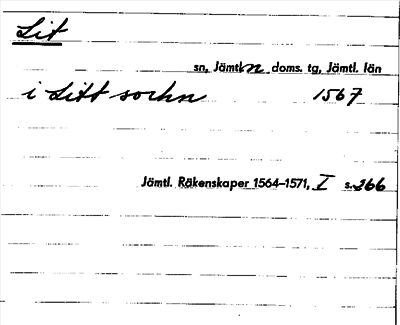 Lit
sn, Jämtl. n doms. tg, Jämtl. län
i Litt sochn 1567
Jämtl. Räkenskaper 1564–1571, I s. 366